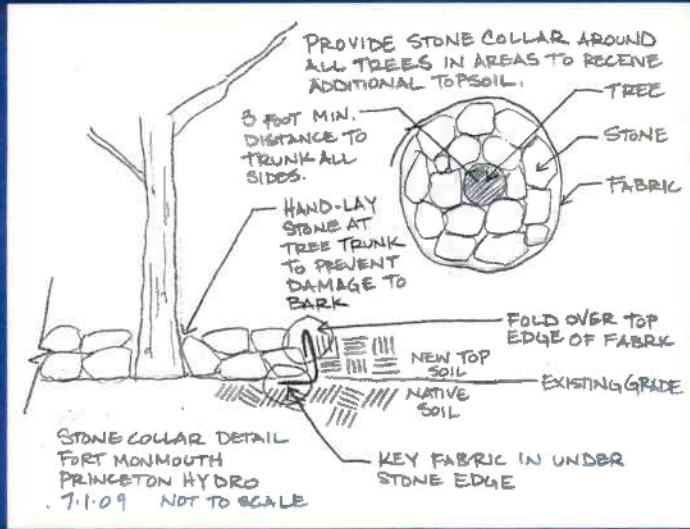 PROVIDE STONE COLLAR AROUND
ALL TREES IN AREAS TO RECEIVE
ADDITIONAL TOPSOIL.
TREE
3 FOOT MIN.
DISTANCE TO
TRUNK ALL
SIDES.
STONE
FABRIC
HAND-LAY
STONE AT
TREE TRUNK
TO PREVENT
DAMAGE TO
BARK
FOLD OVER TOP
EDGE OF FABRIC
NEW TOP
SOIL
EXISTING GRADE
NATIVE
SOIL
STONE COLLAR DETAIL
FORT MONMOUTH
PRINCETON HYDRO
7.1.09 NOT TO SCALE
KEY FABRIC IN UNDER
STONE EDGE